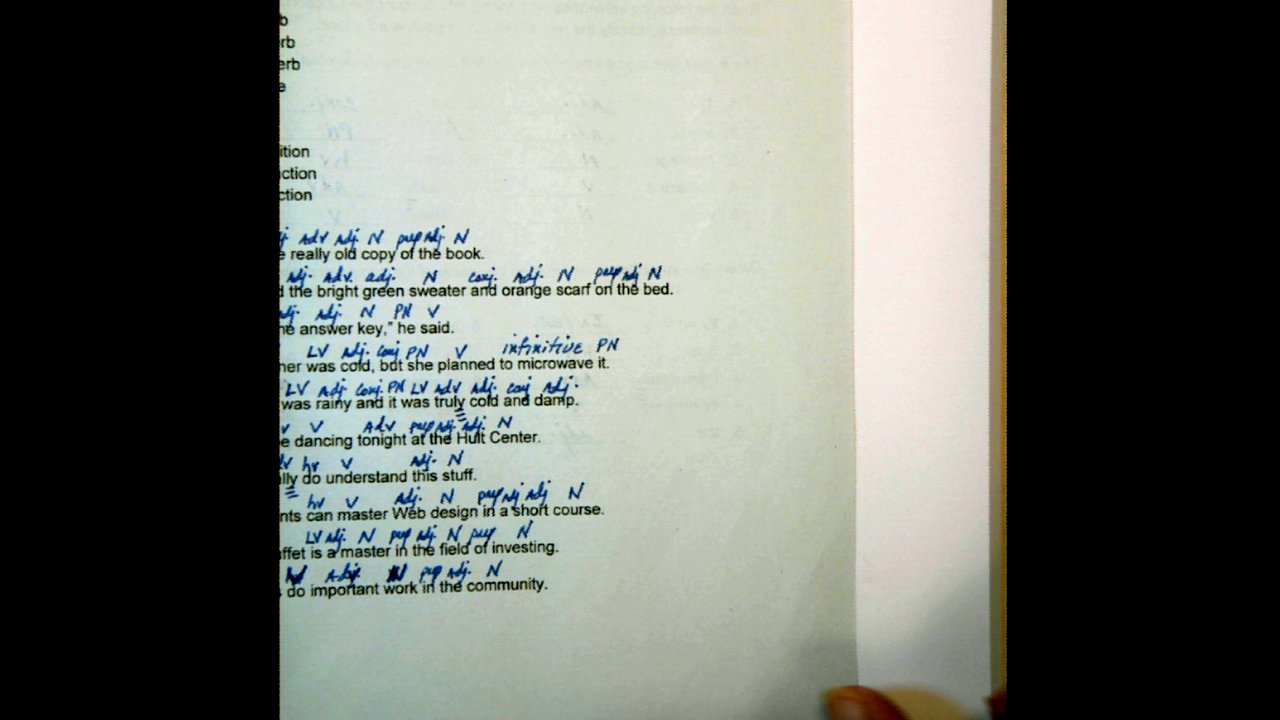 b
rb
erb
e
ition
ction
ction
Adv Adj N prep Adj. N
e really old copy of the book.
Adj. Adv. adj. N conj. Adj. N prep Adj N
d the bright green sweater and orange scarf on the bed.
dj. Adj. N PN V
he answer key," he said.
LV Adj. Conj PN V infinitive PN
ner was cold, but she planned to microwave it.
LV Adj Conj. PN LV Adv Adj. conj Adj.
was rainy and it was truly cold and damp.
v V Adv prep Adj. Adj. N
e dancing tonight at the Hult Center.
dv hv V Adj. N
lly do understand this stuff.
hv V Adj. N prep Adj Adj N
nts can master Web design in a short course.
LV Adj. N prep Adj N prep N
ffet is a master in the field of investing.
N prep Adj. N
do important work in the community.